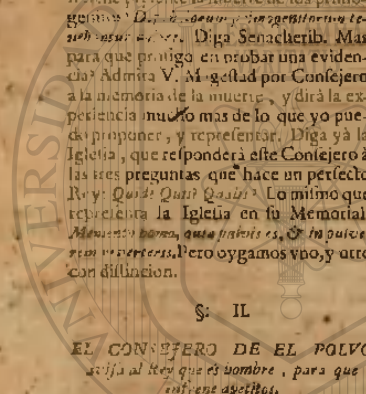 genitos:
Diga Senacherib. Mas
para que prosigo en probar una eviden-
cia? Admita V. Magestad por Consejero
a la memoria de la muerte, y dirà la ex-
periencia mucho mas de lo que yo pue-
do proponer, y representar. Diga yà la
Iglesia, que responderà este Consejero à
las tres preguntas que hace un perfecto
Rey: Quid? Quis? Qualis? Lo mismo que
representa la Iglesia en su Memorial:
Memento homo, quia pulvis es, & in pulve-
rem reverteris. Pero oygamos vno, y otro
con distincion.
§: II
EL CONSEJERO DE EL POLVO
avisa al Rey que es hombre, para que
enfrene apetitos.